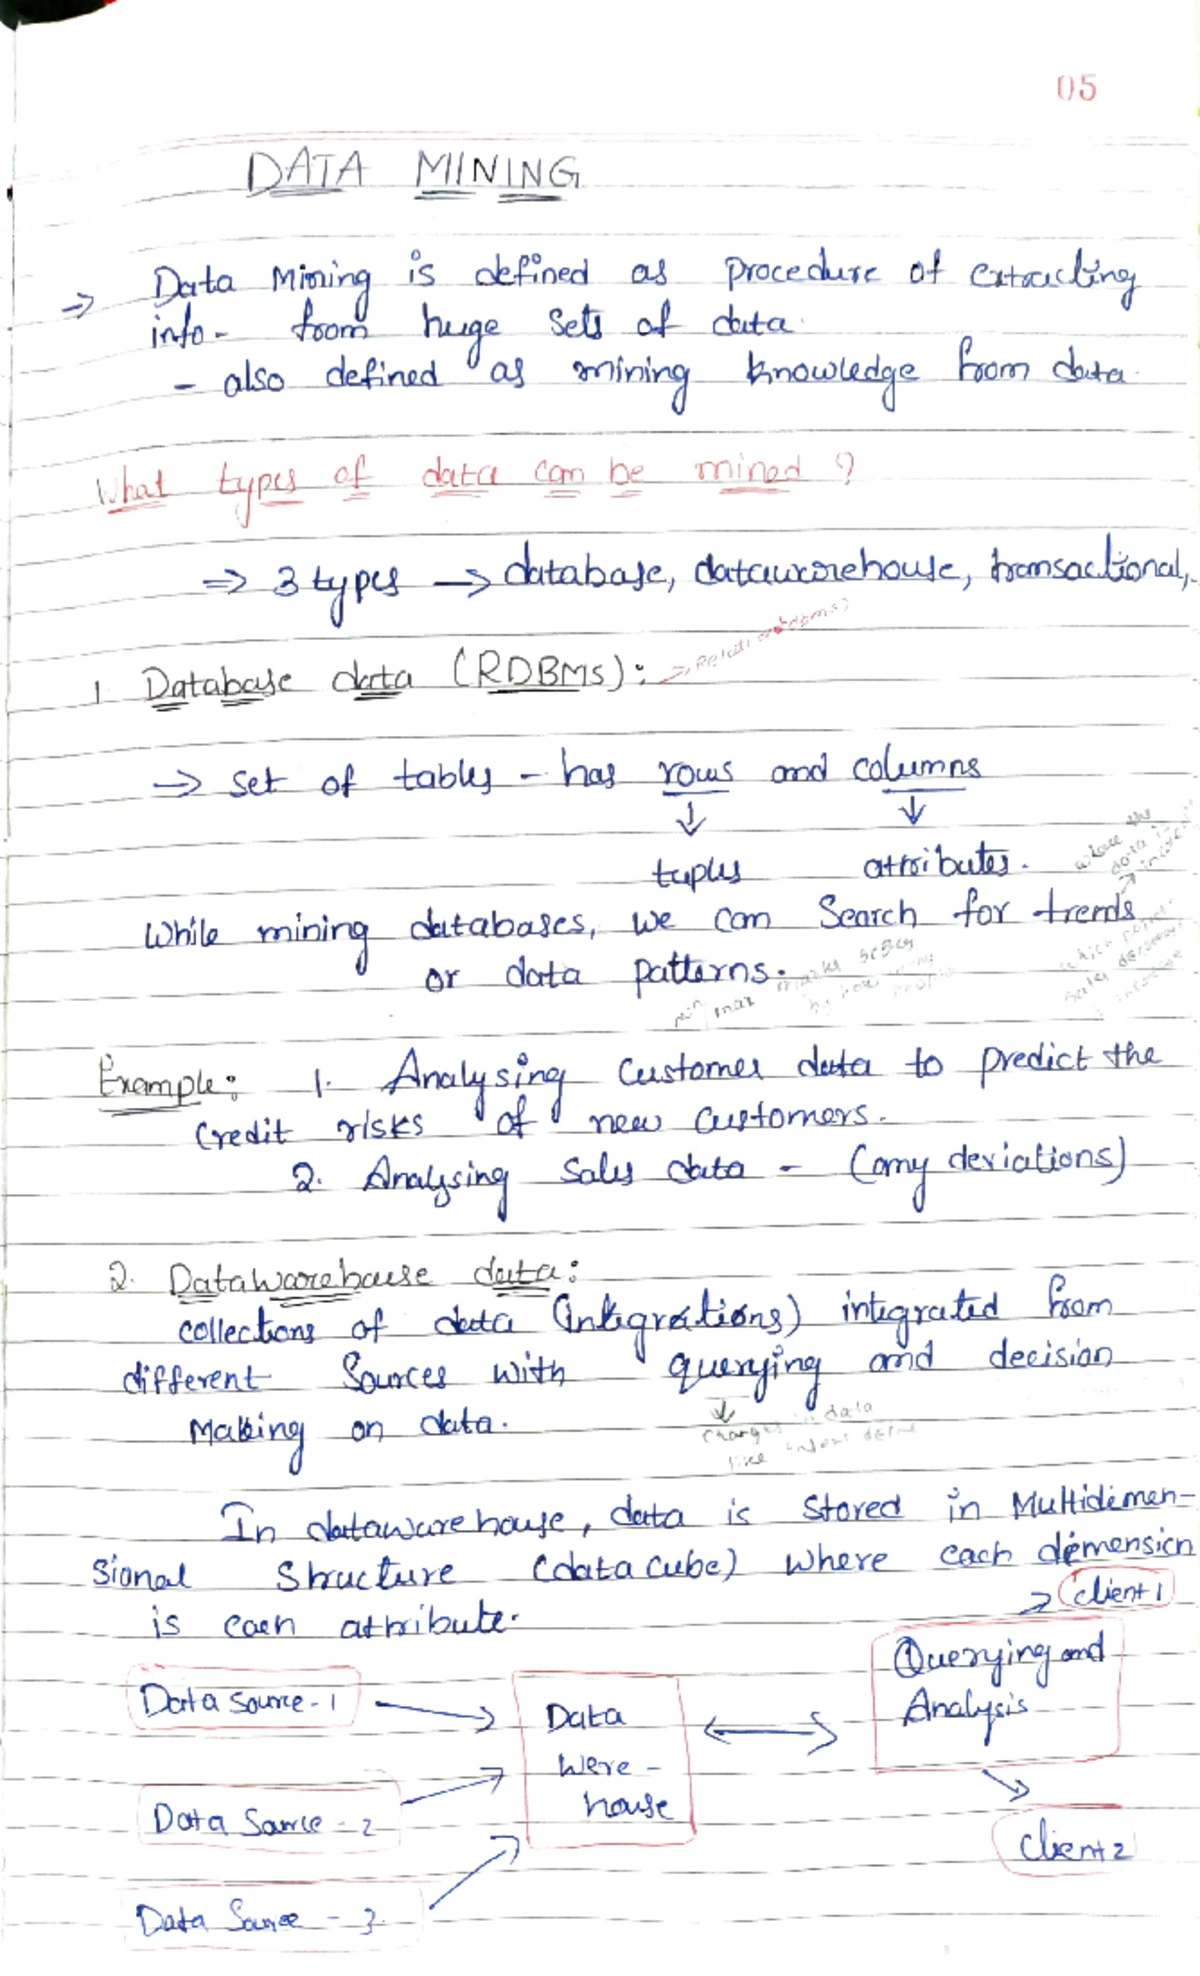 05
DATA MINING
⇒ Data Mining is defined as procedure of extracting
info- from huge sets of data.
- also defined as mining knowledge from data.
What types of data can be mined ?
⇒ 3 types → database, datawarehouse, transactional,
→ Relational
1. Database data (RDBMS):
→ set of tables - has rows and columns
↓ ↓
tuples attributes.
where the
data is
While mining databases, we can Search for trends
or data patterns.
min max marks
Example: 1. Analysing Customer data to predict the
Credit risks of new customers.
2. Analysing Sales data - (any deviations)
2. Datawarehouse data:
collections of data (integrations) integrated from
different Sources with querying and decision
Making on data.
↓
changes in data
like
In datawarehouse, data is stored in Multidimen-
sional Structure (data cube) where each dimension
is each attribute.
→ client 1
Querying and
Analysis
Data source - 1
Data
Were -
house
Data Source - 2
client 2
Data Source - 3.